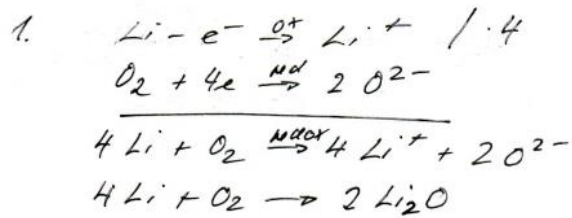 1. Li - e⁻ →ox Li⁺ / · 4
O₂ + 4e →red 2 O²⁻
4 Li + O₂ →redox 4 Li⁺ + 2 O²⁻
4 Li + O₂ → 2 Li₂O